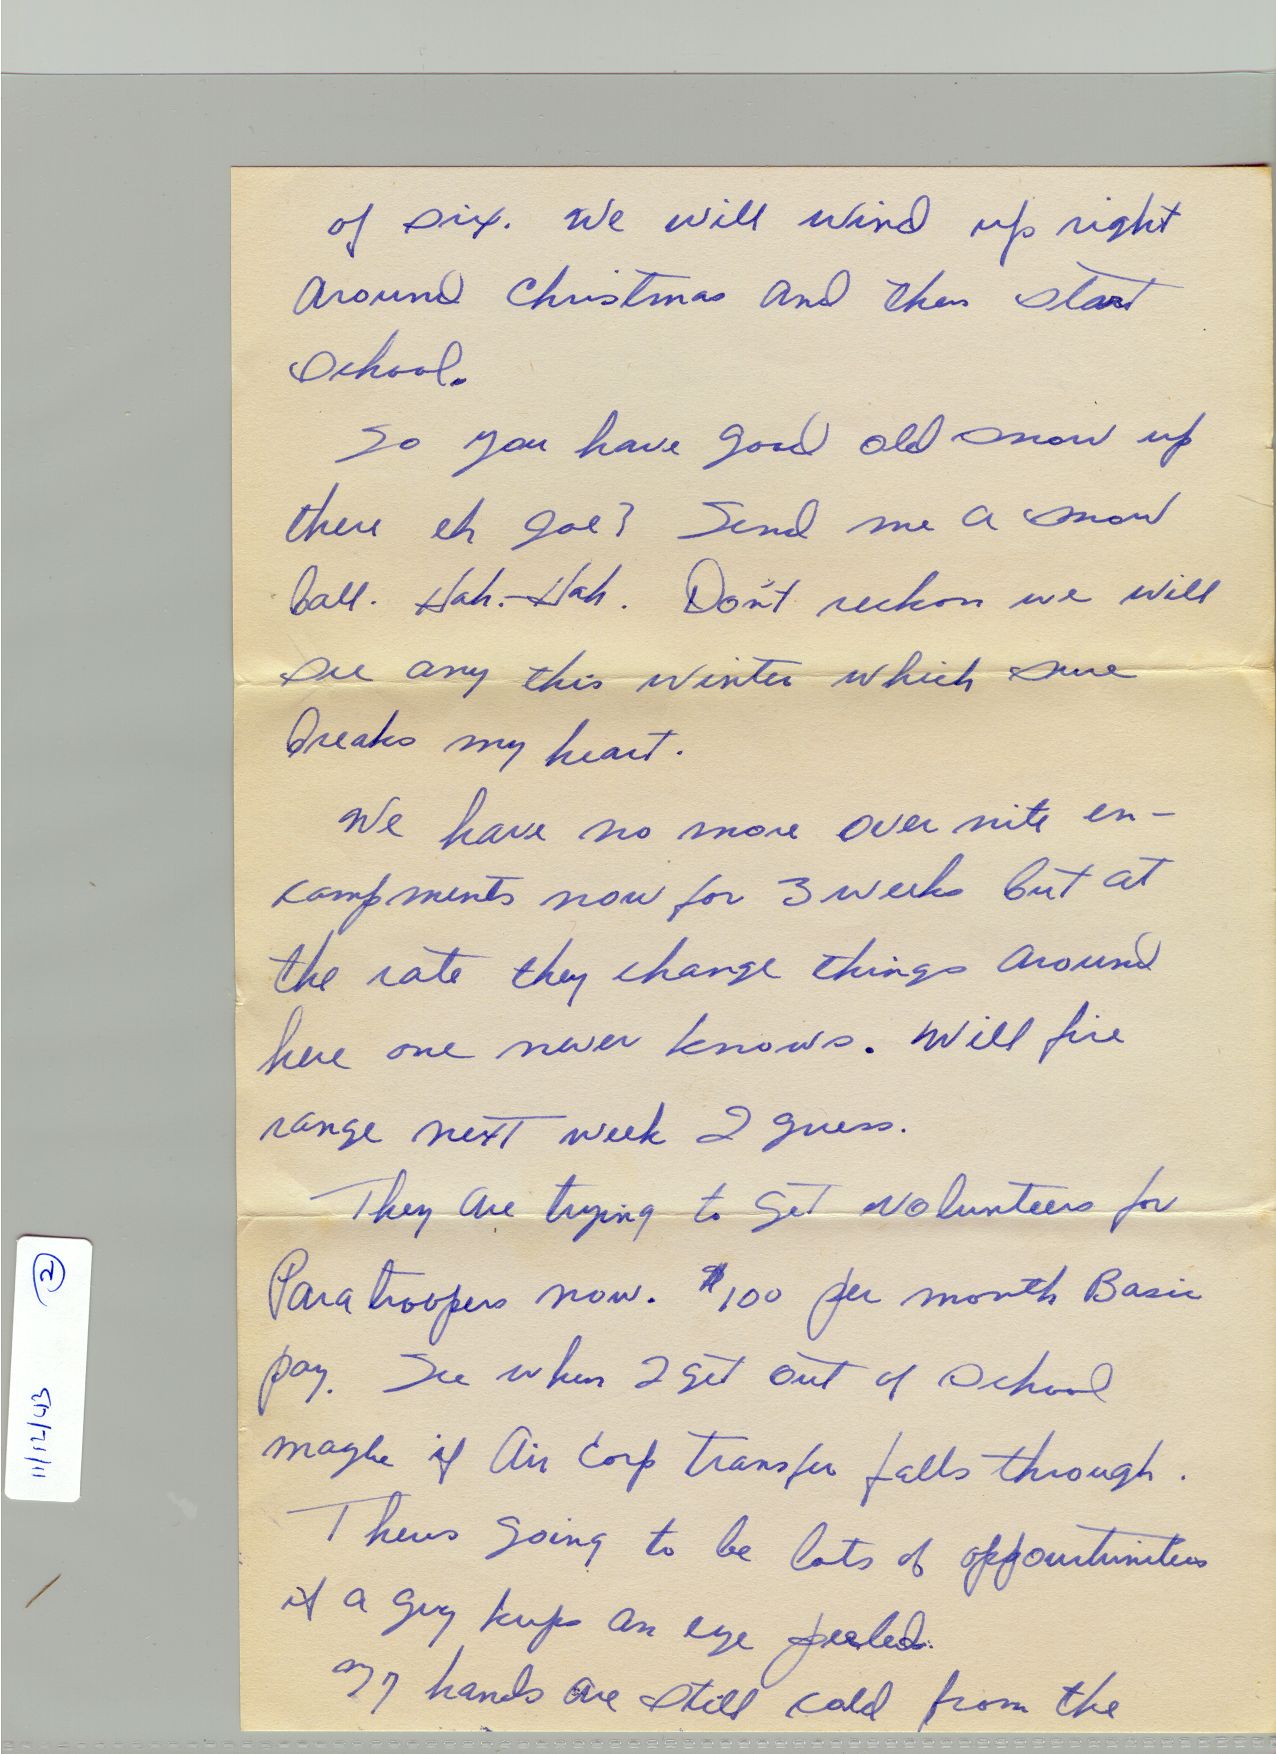 of six. We will wind up right
around Christmas and then start
school.
So you have good old snow up
there eh Joe? Send me a snow
ball. Hah.-Hah. Don't reckon we will
see any this winter which sure
breaks my heart.
We have no more over nite en-
campments now for 3 weeks but at
the rate they change things around
here one never knows. Will fire
range next week I guess.
They are trying to get volunteers for
Paratroopers now. $100 per month Basic
pay. See when I get out of school
maybe if Air Corp transfer falls through.
Theres going to be lots of oppourtunities
if a guy keeps an eye peeled.
My hands are still cold from the
11/12/43 ②